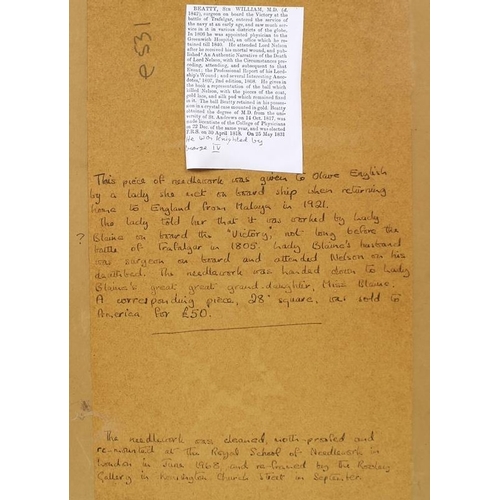 e531
BEATTY, SIR WILLIAM, M.D. (d.
1842), surgeon on board the Victory at the
battle of Trafalgar, entered the service of
the navy at an early age, and saw much
service in it in various districts of the globe.
In 1806 he was appointed physician to the
Greenwich Hospital, an office which he re-
tained till 1840. He attended Lord Nelson
after he received his mortal wound, and pub-
lished 'An Authentic Narrative of the Death
of Lord Nelson, with the Circumstances pre-
ceding, attending, and subsequent to that
Event; the Professional Report of his Lord-
ship's Wound; and several Interesting Anec-
dotes,' 1807, 2nd edition, 1808. He gives in
the book a representation of the ball which
killed Nelson, with the pieces of the coat,
gold lace, and silk pad which remained fixed
in it. The ball Beatty retained in his posses-
sion in a crystal case mounted in gold. Beatty
obtained the degree of M.D. from the uni-
versity of St. Andrews on 14 Oct. 1817, was
made licentiate of the College of Physicians
on 22 Dec. of the same year, and was elected
F.R.S. on 30 April 1818. On 25 May 1831
he was knighted by
George IV
This piece of needlework was given to Olave English
by a lady she met on board ship when returning
home to England from Malaya in 1921.
The lady told her that it was worked by Lady
? Blaine on board the "Victory", not long before the
battle of Trafalgar in 1805. Lady Blaine's husband
was surgeon on board and attended Nelson on his
deathbed. The needlework was handed down to Lady
Blaine's great great grand-daughter, Miss Blaine.
A corresponding piece, 28" square, was sold to
American for £50.
The needlework was cleaned, moth-proofed and
re-mounted at the Royal School of Needlework in
London in June 1968 and re-framed by the
Gallery in Kensington Church Street in September